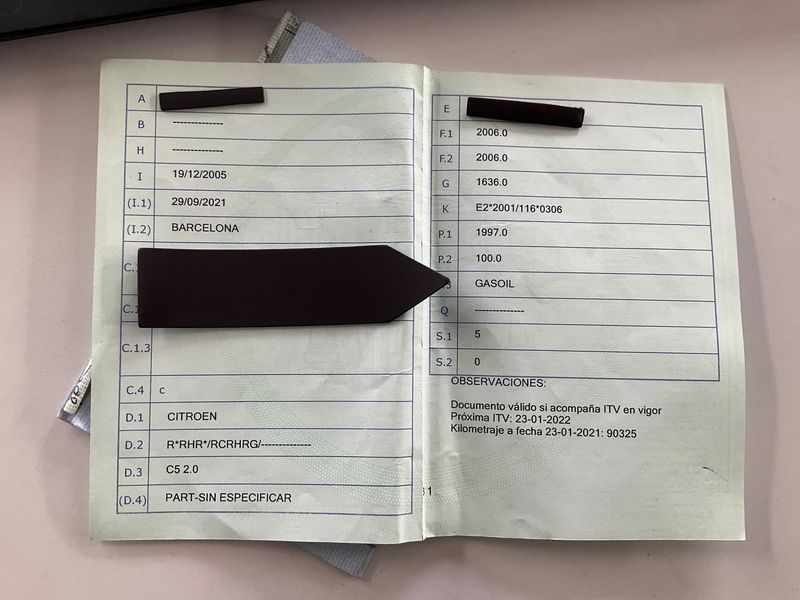 A
B --------------
H --------------
I 19/12/2005
(I.1) 29/09/2021
(I.2) BARCELONA
C.1
C.1
C.1.3
C.4 c
D.1 CITROEN
D.2 R*RHR*/RCRHRG/--------------
D.3 C5 2.0
(D.4) PART-SIN ESPECIFICAR
E
F.1 2006.0
F.2 2006.0
G 1636.0
K E2*2001/116*0306
P.1 1997.0
P.2 100.0
GASOIL
Q --------------
S.1 5
S.2 0
OBSERVACIONES:
Documento válido si acompaña ITV en vigor
Próxima ITV: 23-01-2022
Kilometraje a fecha 23-01-2021: 90325